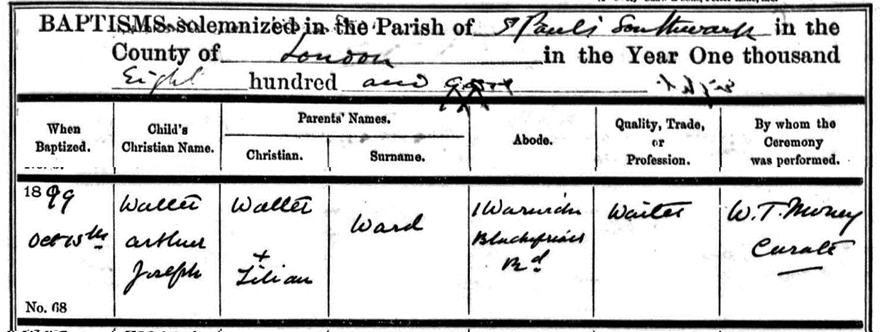 BAPTISMS solemnized in the Parish of St Paul's Southwark in the
County of London in the Year One thousand
Eight hundred and
When
Baptized.
Child's
Christian Name.
Parents' Names.
Christian.
Surname.
Abode.
Quality, Trade,
or
Profession.
By whom the
Ceremony
was performed.
1899
Oct 15th
No. 68
Walter
Arthur
Joseph
Walter
+
Lilian
Ward
1 Warwick
Blackfriars
Rd
Waiter
W. T. Money
Curate